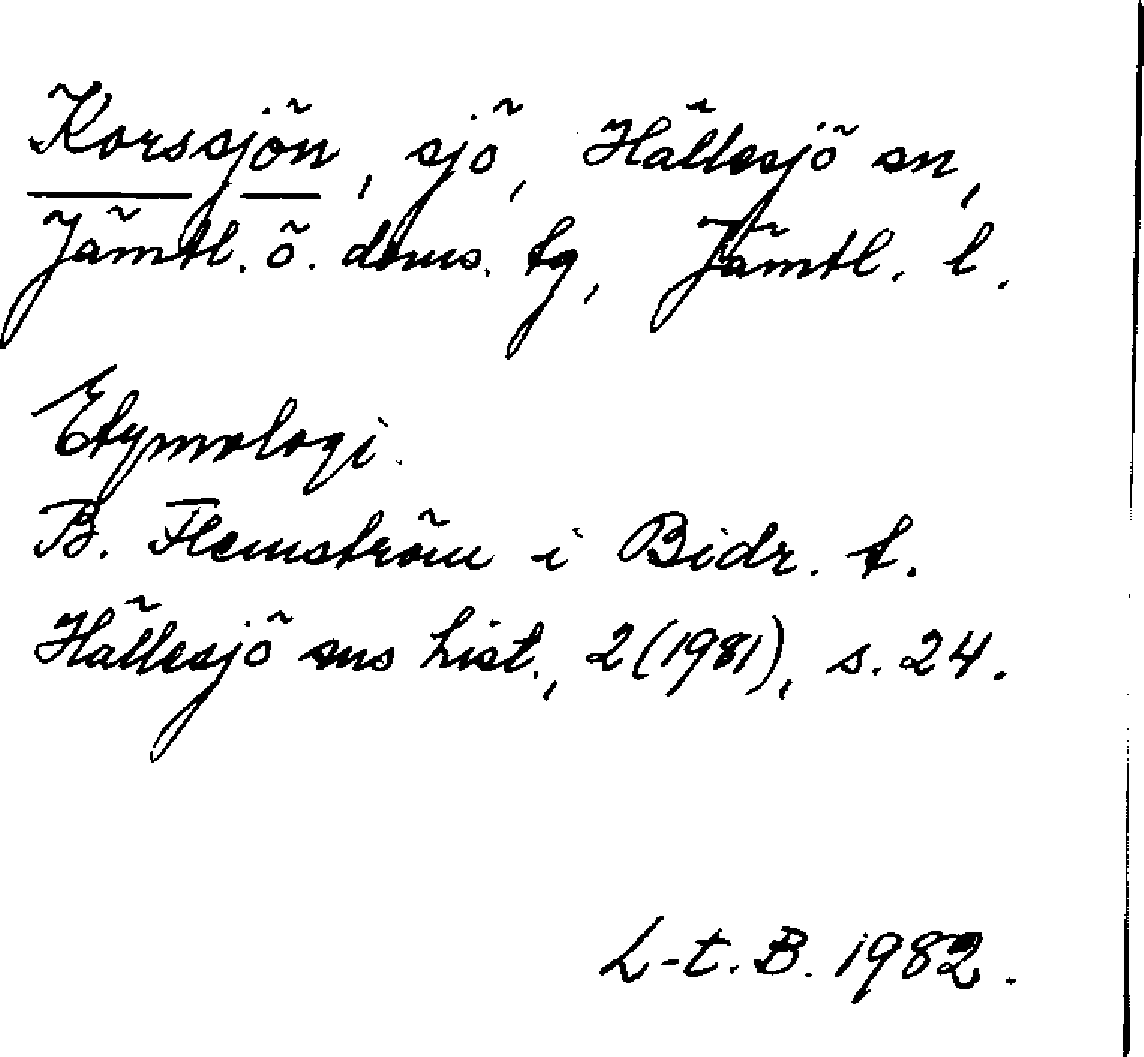 Korssjön, sjö, Hällesjö sn,
Jämtl. ö. doms. tg, Jämtl. l.
Etymologi.
B. Flemström i Bidr. t.
Hällesjö sns hist., 2 (1981), s. 24.
L-t. B. 1982.